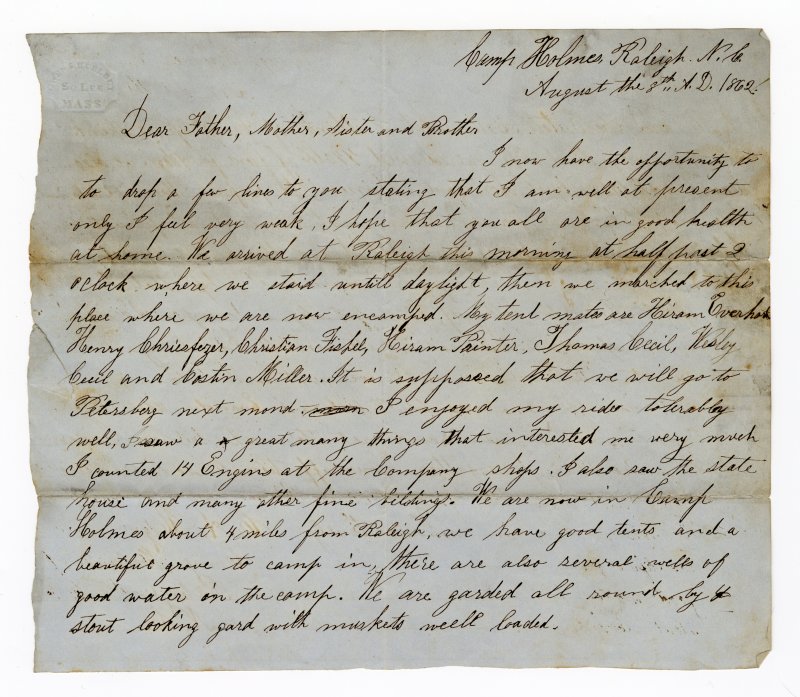 So. Lee
MASS.
Camp Holmes, Raleigh. N. C.
August the 8th A.D. 1862.
Dear Father, Mother, Sister and Brother
I now have the opportunity to
to drop a few lines to you stating that I am well at present
only I feel very weak, I hope that you all are in good health
at home. We arrived at Raleigh this morning at half past 2
oclock where we staid untill daylight, then we marched to this
place where we are now encamped. My tent mates are Hiram Everhart
Henry Chriesfezer, Christian Fishel, Hiram Painter, Thomas Cecil, Wesley
Cecil and Costin Miller. It is supposed that we will go to
Petersberg next mond I enjoyed my ride tolerabley
well, I saw a great many things that interested me very much
I counted 14 Engins at the Company shops. I also saw the state
house and many other fine belding. We are now in Camp
Holmes about 4 miles from Raleigh, we have good tents and a
beautiful grove to camp in, there are also several wells of
good water in the camp. We are garded all round by
stout looking gard with muskets well loaded.